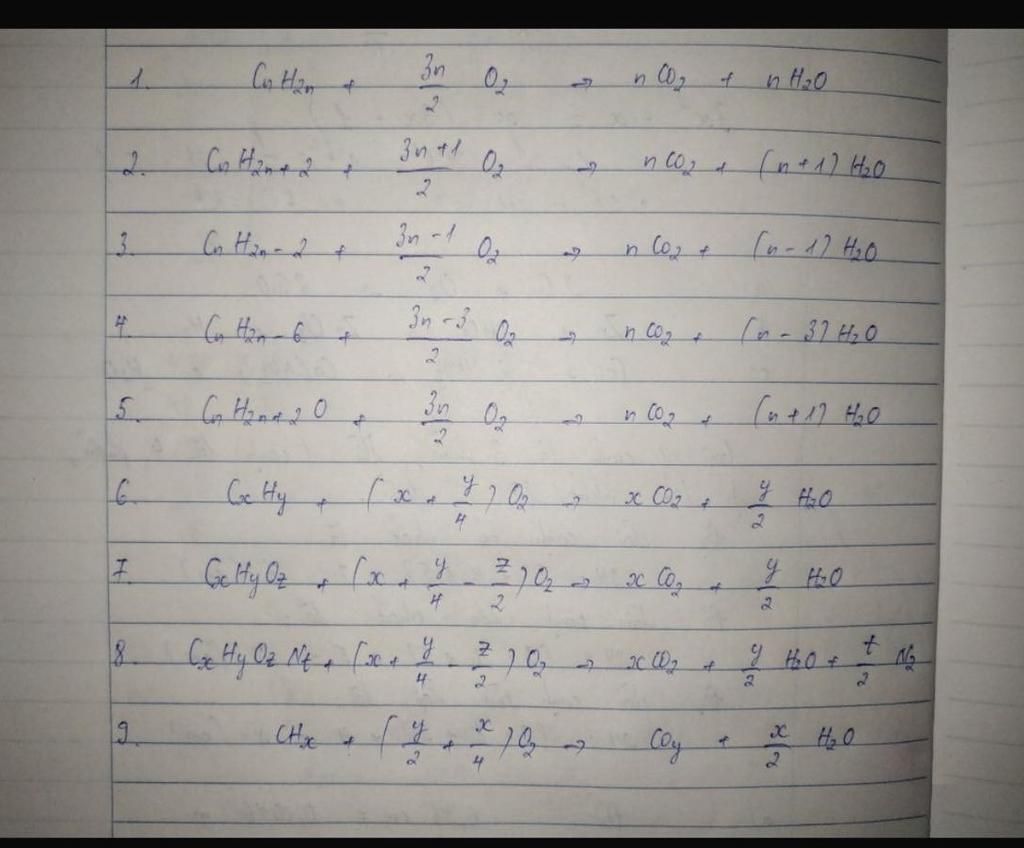 1. CnH2n + 3n/2 O2 → nCO2 + nH2O
2. CnH2n+2 + (3n+1)/2 O2 → nCO2 + (n+1)H2O
3. CnH2n-2 + (3n-1)/2 O2 → nCO2 + (n-1)H2O
4. CnH2n-6 + (3n-3)/2 O2 → nCO2 + (n-3)H2O
5. CnH2n+2O + 3n/2 O2 → nCO2 + (n+1)H2O
6. CxHy + (x + y/4)O2 → xCO2 + y/2 H2O
7. CxHyOz + (x + y/4 - z/2)O2 → xCO2 + y/2 H2O
8. CxHyOzNt + (x + y/4 - z/2)O2 → xCO2 + y/2 H2O + t/2 N2
9. CHx + (y/2 + x/4)O2 → COy + x/2 H2O